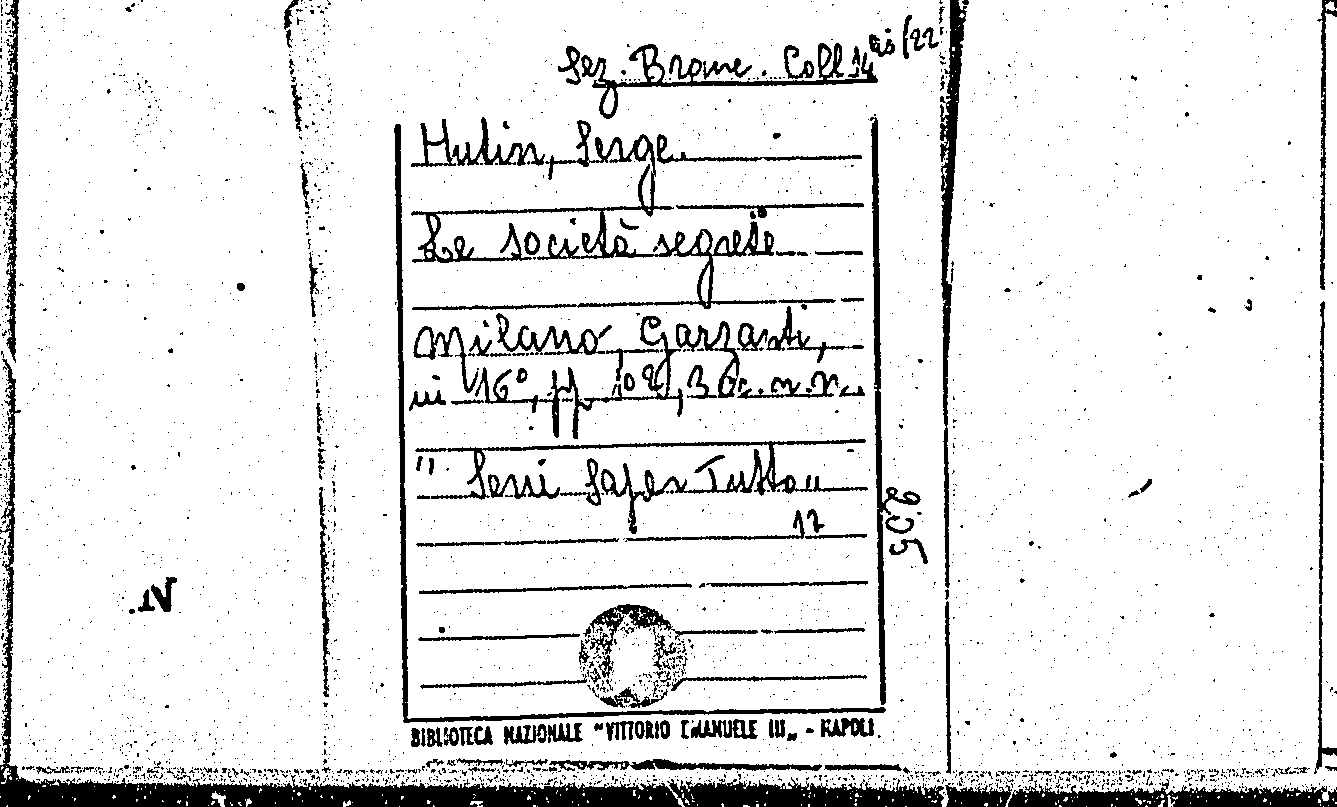 Sez. Branc. Coll 14 bis/22
Hutin, Serge.
Le società segrete
Milano, Garzanti,
in 16°, pp. 108, 3 c.n.n.
" Seni Saper Tutto "
17
205
N.
BIBLIOTECA NAZIONALE "VITTORIO EMANUELE III" - NAPOLI